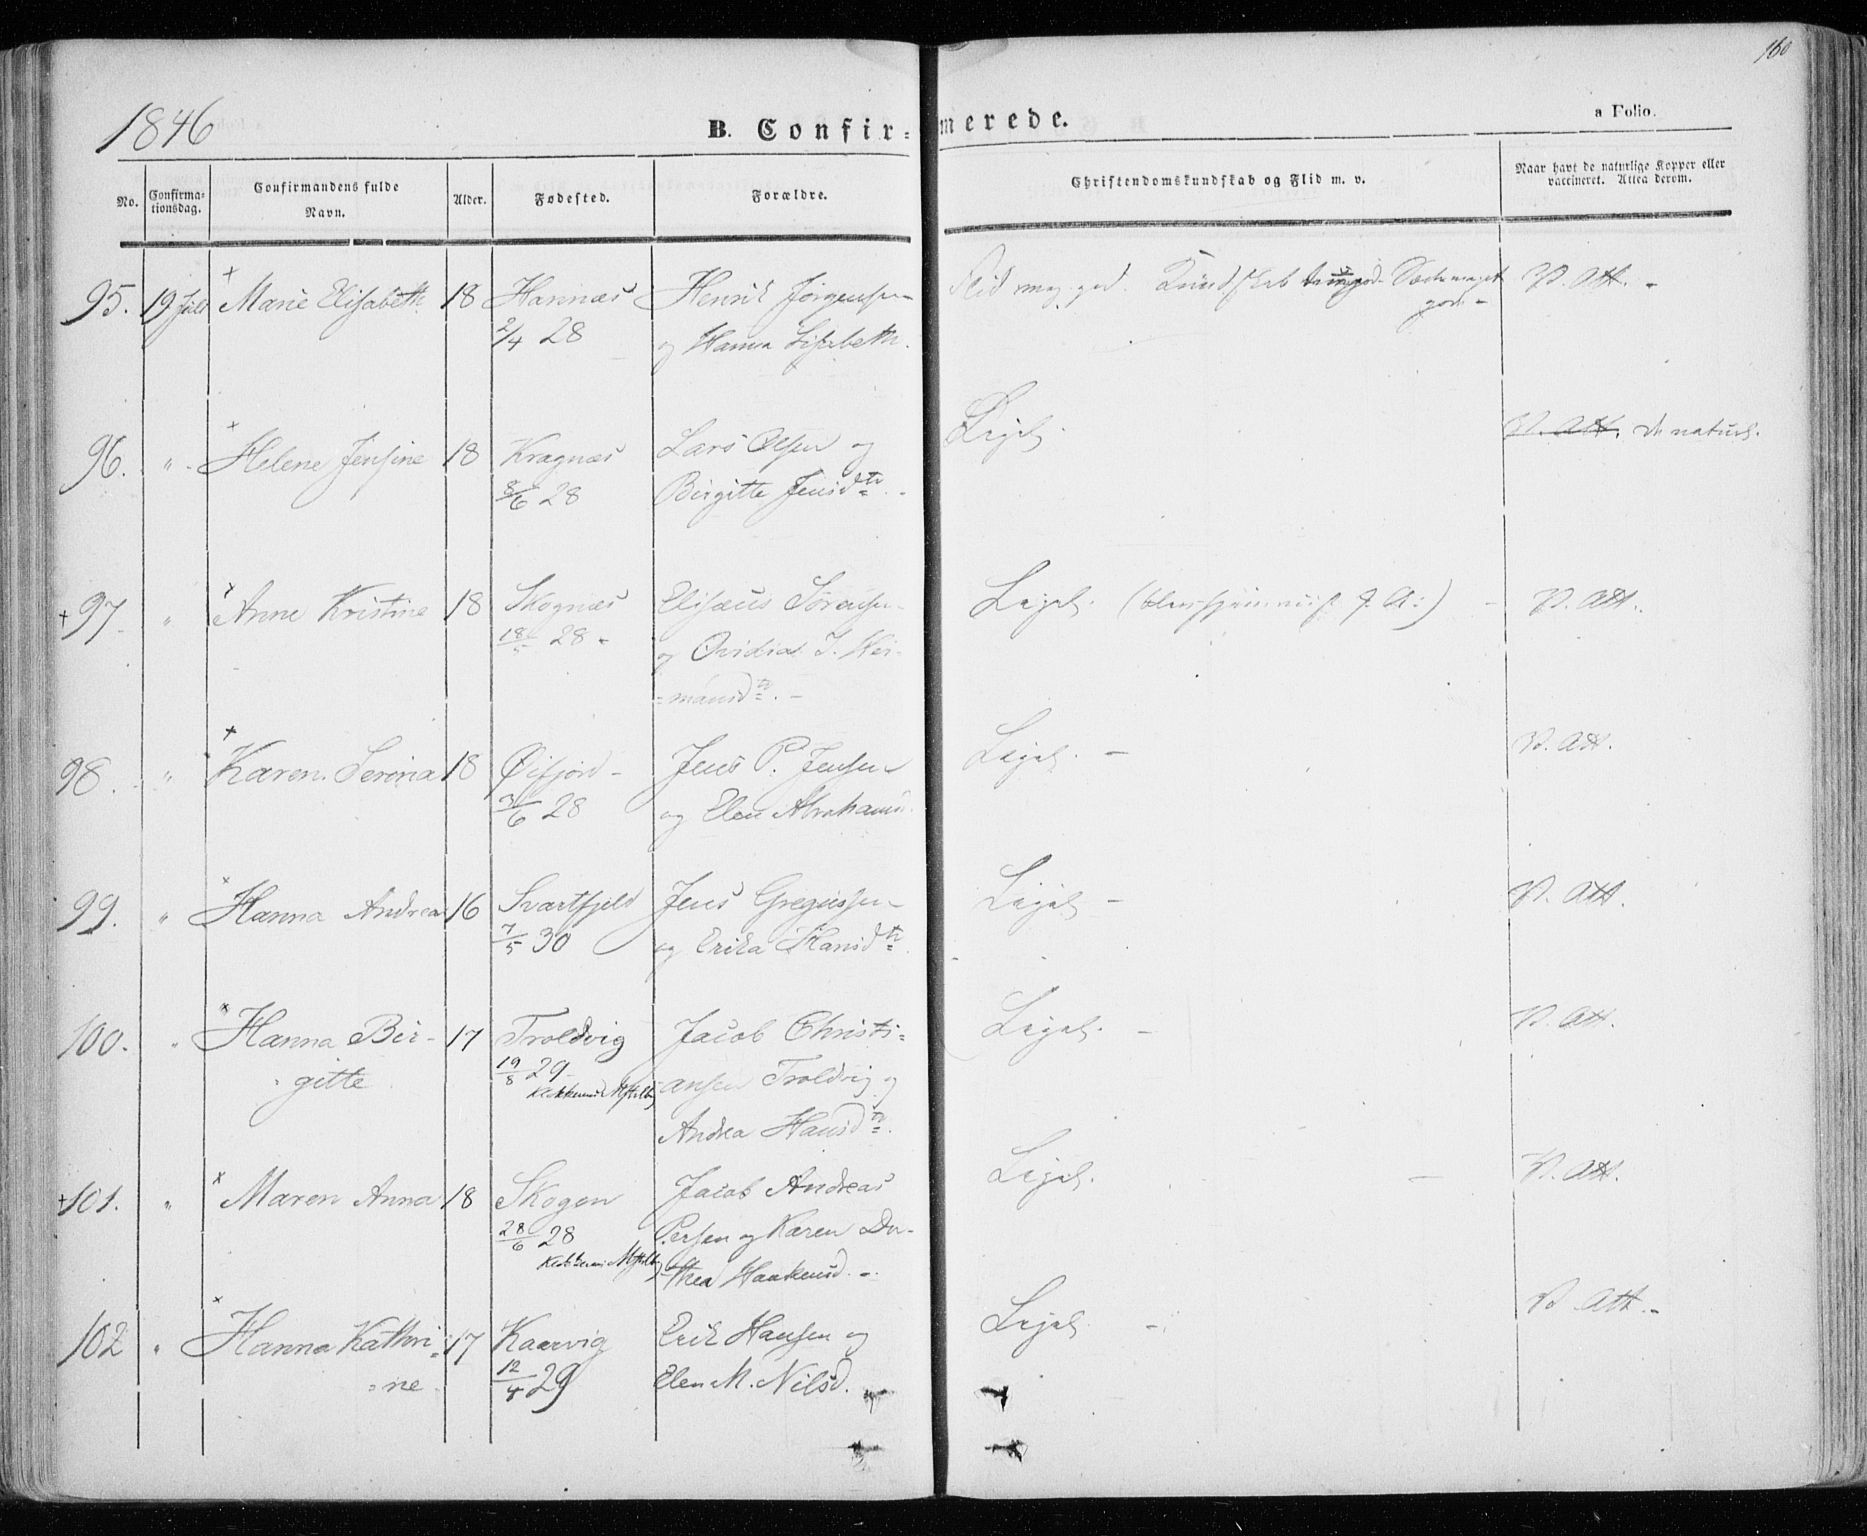 160
1846
B. Confir=merede.
a Folio.
No.
Confirma-
tionsdag.
Confirmandens fulde
Navn.
Alder.
Fødested.
Forældre.
Christendomskundskab og Flid m. v.
Naar havt de naturlige Kopper eller
vaccineret. Attea derom.
95. 19 Juli Marie Elisabeth 18 Hannæs Henrik Jørgensen Flid meg. god. Kundskab Sæder meget V. Att. -
god -
2/4 28 og Hanna Lisebeth.
96. " Helene Jensine 18 Kragnæs Lars Olsen og Ligel. V. Att. de naturl.
8/6 28 Birgitte Jensdtr. -
+ 97 " Anne Kristine 18 Skognæs Elisæus Sørensen Ligel. V. Att.
18/5 28 - og Ovidia J. Her=
=mansdtr. -
98. " Karen Serina 18 Øifjord - Jens P. Jensen Ligel. - V. Att.
/6 28 og Elen Abrahams.
99. " Hanna Andrea 16 Svartfjeld Jens Gregussen Ligel. - V. Att.
7/5 30 og Erika Hansdtr.
100. " Hanna Bir- 17 Troldvig Jacob Christi= Ligel. - V. Att.
gitte 19/8 29 ansen Troldvig og
Andrea Hansdtr.
+ 101. " Maren Anna 18 Skogen Jacob Andreas Ligel. - V. Att.
28/6 28 Persen og Karen Do-
thea Haakensd. -
102 " Hanna Kathri= 17 Kaarvig Erik Hansen og Ligel. - V. Att. -
=ne 12/4 29 Elen M. Nilsd.